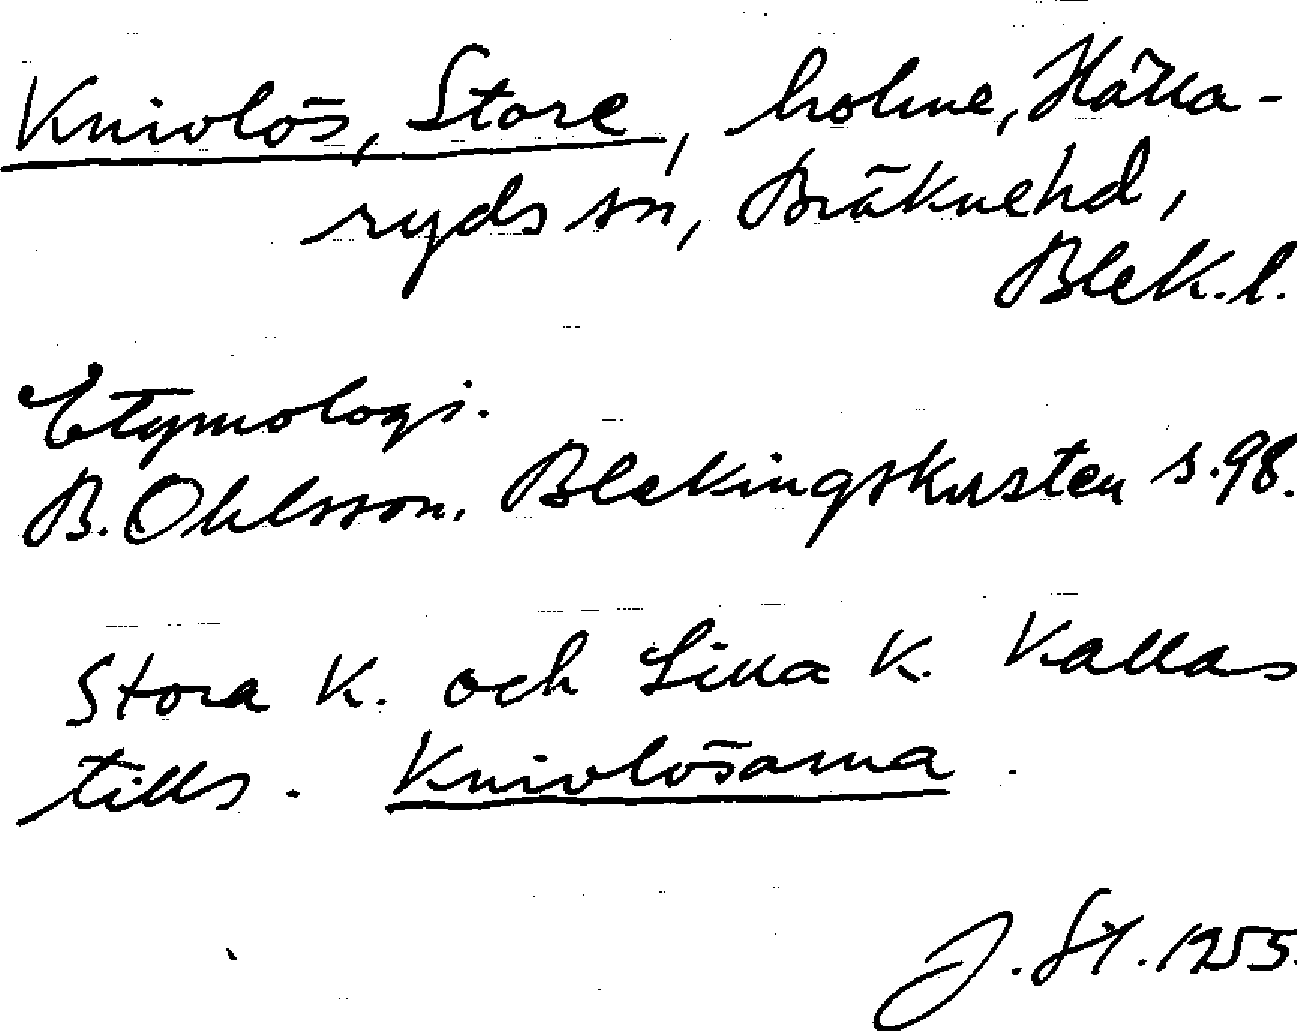 Knivlös, Store, holme, Hälla-
ryds sn, Bräknehd,
Blek. l.
Etymologi.
B. Ohlsson, Blekingskusten s. 98.
Stora K. och Lilla K. kallas
tills. Knivlösarna.
J. St. 1955.